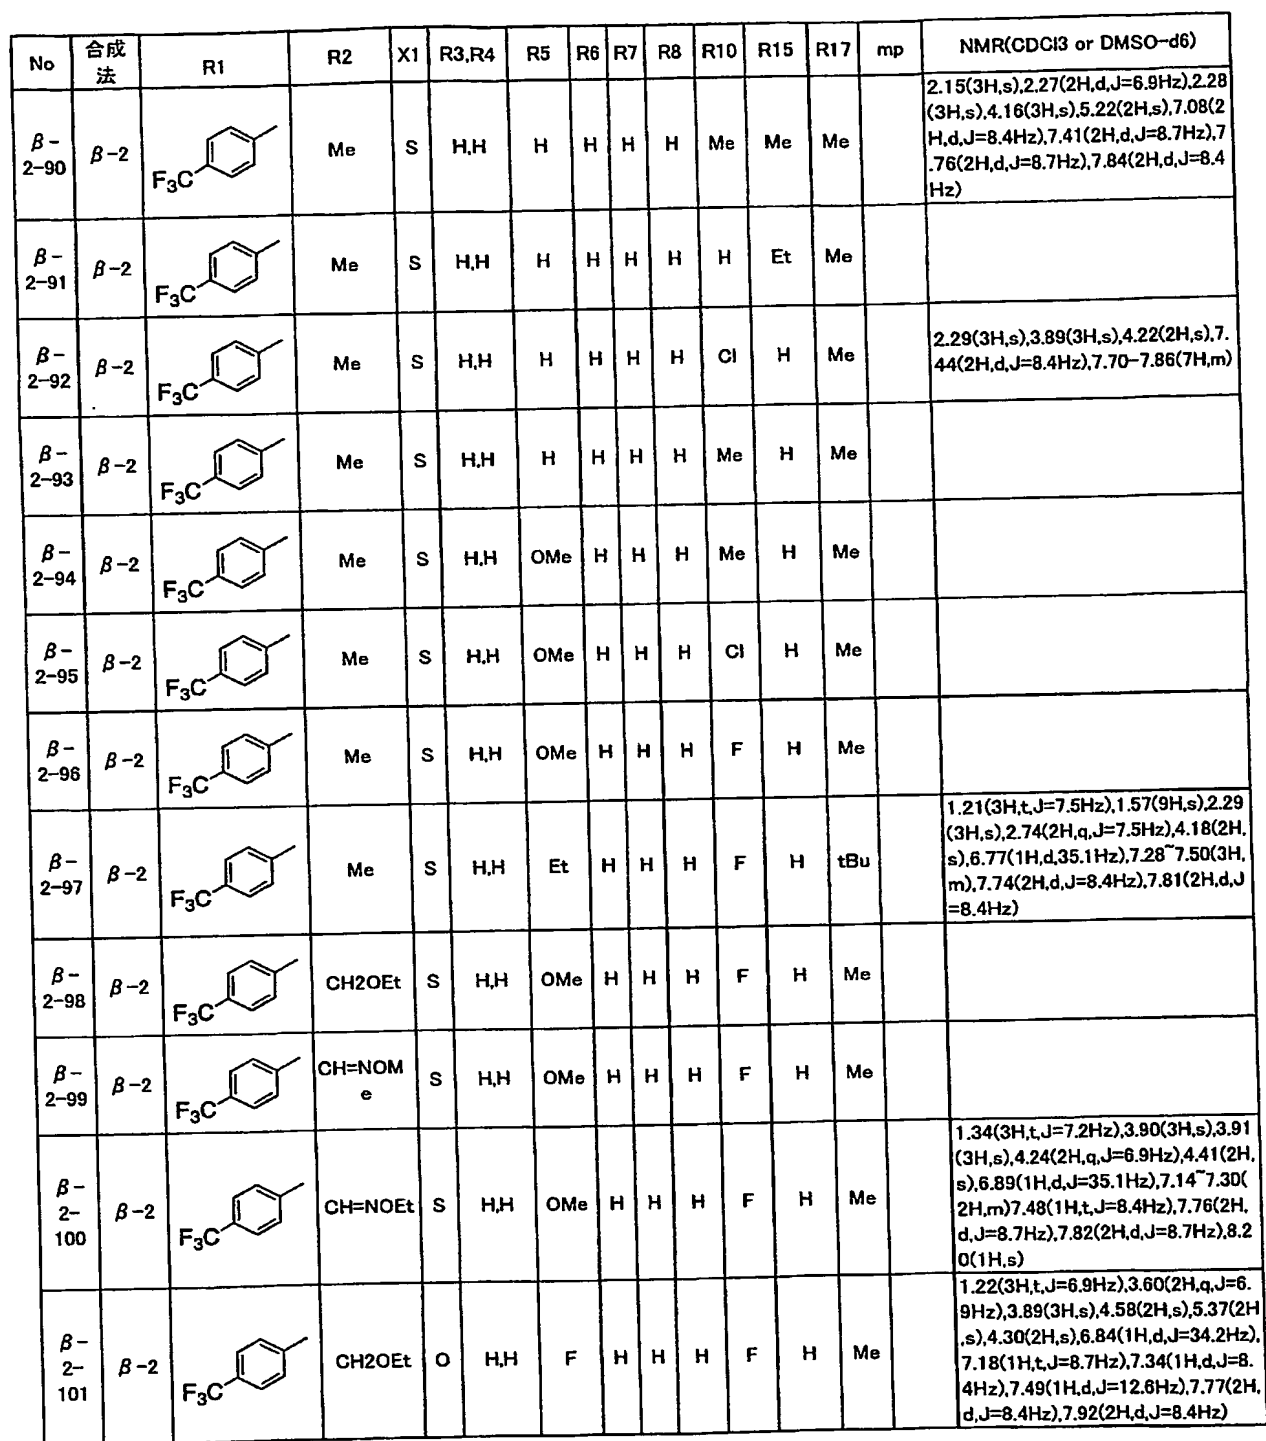 No 合成法 R1 R2 X1 R3,R4 R5 R6 R7 R8 R10 R15 R17 mp NMR(CDCl3 or DMSO-d6)
β-2-90 β-2 F3C Me S H,H H H H H Me Me Me
2.15(3H,s),2.27(2H,d,J=6.9Hz),2.28
(3H,s),4.16(3H,s),5.22(2H,s),7.08(2
H,d,J=8.4Hz),7.41(2H,d,J=8.7Hz),7
.76(2H,d,J=8.7Hz),7.84(2H,d,J=8.4
Hz)
β-2-91 β-2 F3C Me S H,H H H H H H Et Me
β-2-92 β-2 F3C Me S H,H H H H H Cl H Me
2.29(3H,s),3.89(3H,s),4.22(2H,s),7.
44(2H,d,J=8.4Hz),7.70-7.86(7H,m)
β-2-93 β-2 F3C Me S H,H H H H H Me H Me
β-2-94 β-2 F3C Me S H,H OMe H H H Me H Me
β-2-95 β-2 F3C Me S H,H OMe H H H Cl H Me
β-2-96 β-2 F3C Me S H,H OMe H H H F H Me
β-2-97 β-2 F3C Me S H,H Et H H H F H tBu
1.21(3H,t,J=7.5Hz),1.57(9H,s),2.29
(3H,s),2.74(2H,q,J=7.5Hz),4.18(2H,
s),6.77(1H,d,35.1Hz),7.28~7.50(3H,
m),7.74(2H,d,J=8.4Hz),7.81(2H,d,J
=8.4Hz)
β-2-98 β-2 F3C CH2OEt S H,H OMe H H H F H Me
β-2-99 β-2 F3C CH=NOMe S H,H OMe H H H F H Me
β-2-100 β-2 F3C CH=NOEt S H,H OMe H H H F H Me
1.34(3H,t,J=7.2Hz),3.90(3H,s),3.91
(3H,s),4.24(2H,q,J=6.9Hz),4.41(2H,
s),6.89(1H,d,J=35.1Hz),7.14~7.30(
2H,m)7.48(1H,t,J=8.4Hz),7.76(2H,
d,J=8.7Hz),7.82(2H,d,J=8.7Hz),8.2
0(1H,s)
β-2-101 β-2 F3C CH2OEt O H,H F H H H F H Me
1.22(3H,t,J=6.9Hz),3.60(2H,q,J=6.
9Hz),3.89(3H,s),4.58(2H,s),5.37(2H
,s),4.30(2H,s),6.84(1H,d,J=34.2Hz),
7.18(1H,t,J=8.7Hz),7.34(1H,d,J=8.
4Hz),7.49(1H,d,J=12.6Hz),7.77(2H,
d,J=8.4Hz),7.92(2H,d,J=8.4Hz)